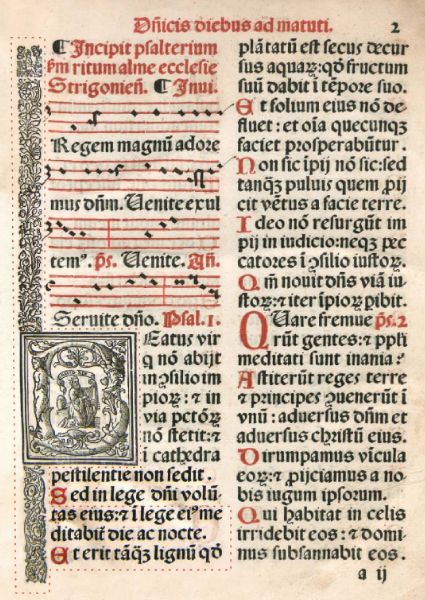 Dñicis diebus ad matuti. 2
¶ Incipit psalterium
ẜm ritum alme ecclesie
Strigonieñ. ¶ Inui.
Regem magnũ adore
mus dñm. Uenite exul
temꝰ. p̃s. Uenite. Añ.
Seruite dño. Psal. 1.
Eatus vir
q nõ abijt
in ↄ̃silio im
pioꝝ: ⁊ in
via pctõꝝ
nõ stetit: ⁊
ĩ cathedra
pestilentie non sedit.
Sed in lege dñi volũ
tas eius: ⁊ ĩ lege eiꝰ me
ditabit̃ die ac nocte.
Et erit tãqꝫ lignũ qð
plãtatũ est secus decur
sus aquaꝝ: qð fructum
suũ dabit ĩ tẽpore suo.
Et folium eius nõ de
fluet: et oĩa quecunqꝫ
faciet prosperabũtur.
Non sic ĩpij nõ sic: sed
tanqꝫ puluis quem ꝓij
cit vẽtus a facie terre.
Ideo nõ resurgũt im
pij in iudicio: neqꝫ pec
catores ĩ ↄ̃silio iustoꝝ.
Qm̃ nouit dñs viã iu
stoꝝ: ⁊ iter ĩpioꝝ pibit.
Quare fremue p̃s. 2
rũt gentes: ⁊ ppl̃i
meditati sunt inania?
Astiterũt reges terre
⁊ principes ↄ̃uenerũt ĩ
vnũ: aduersus dñm et
aduersus christũ eius.
Dirumpamus vĩcula
eoꝝ: ⁊ ꝓijciamus a no
bis iugum ipsorum.
Qui habitat in celis
irridebit eos: ⁊ domi
nus subsannabit eos.
a ij